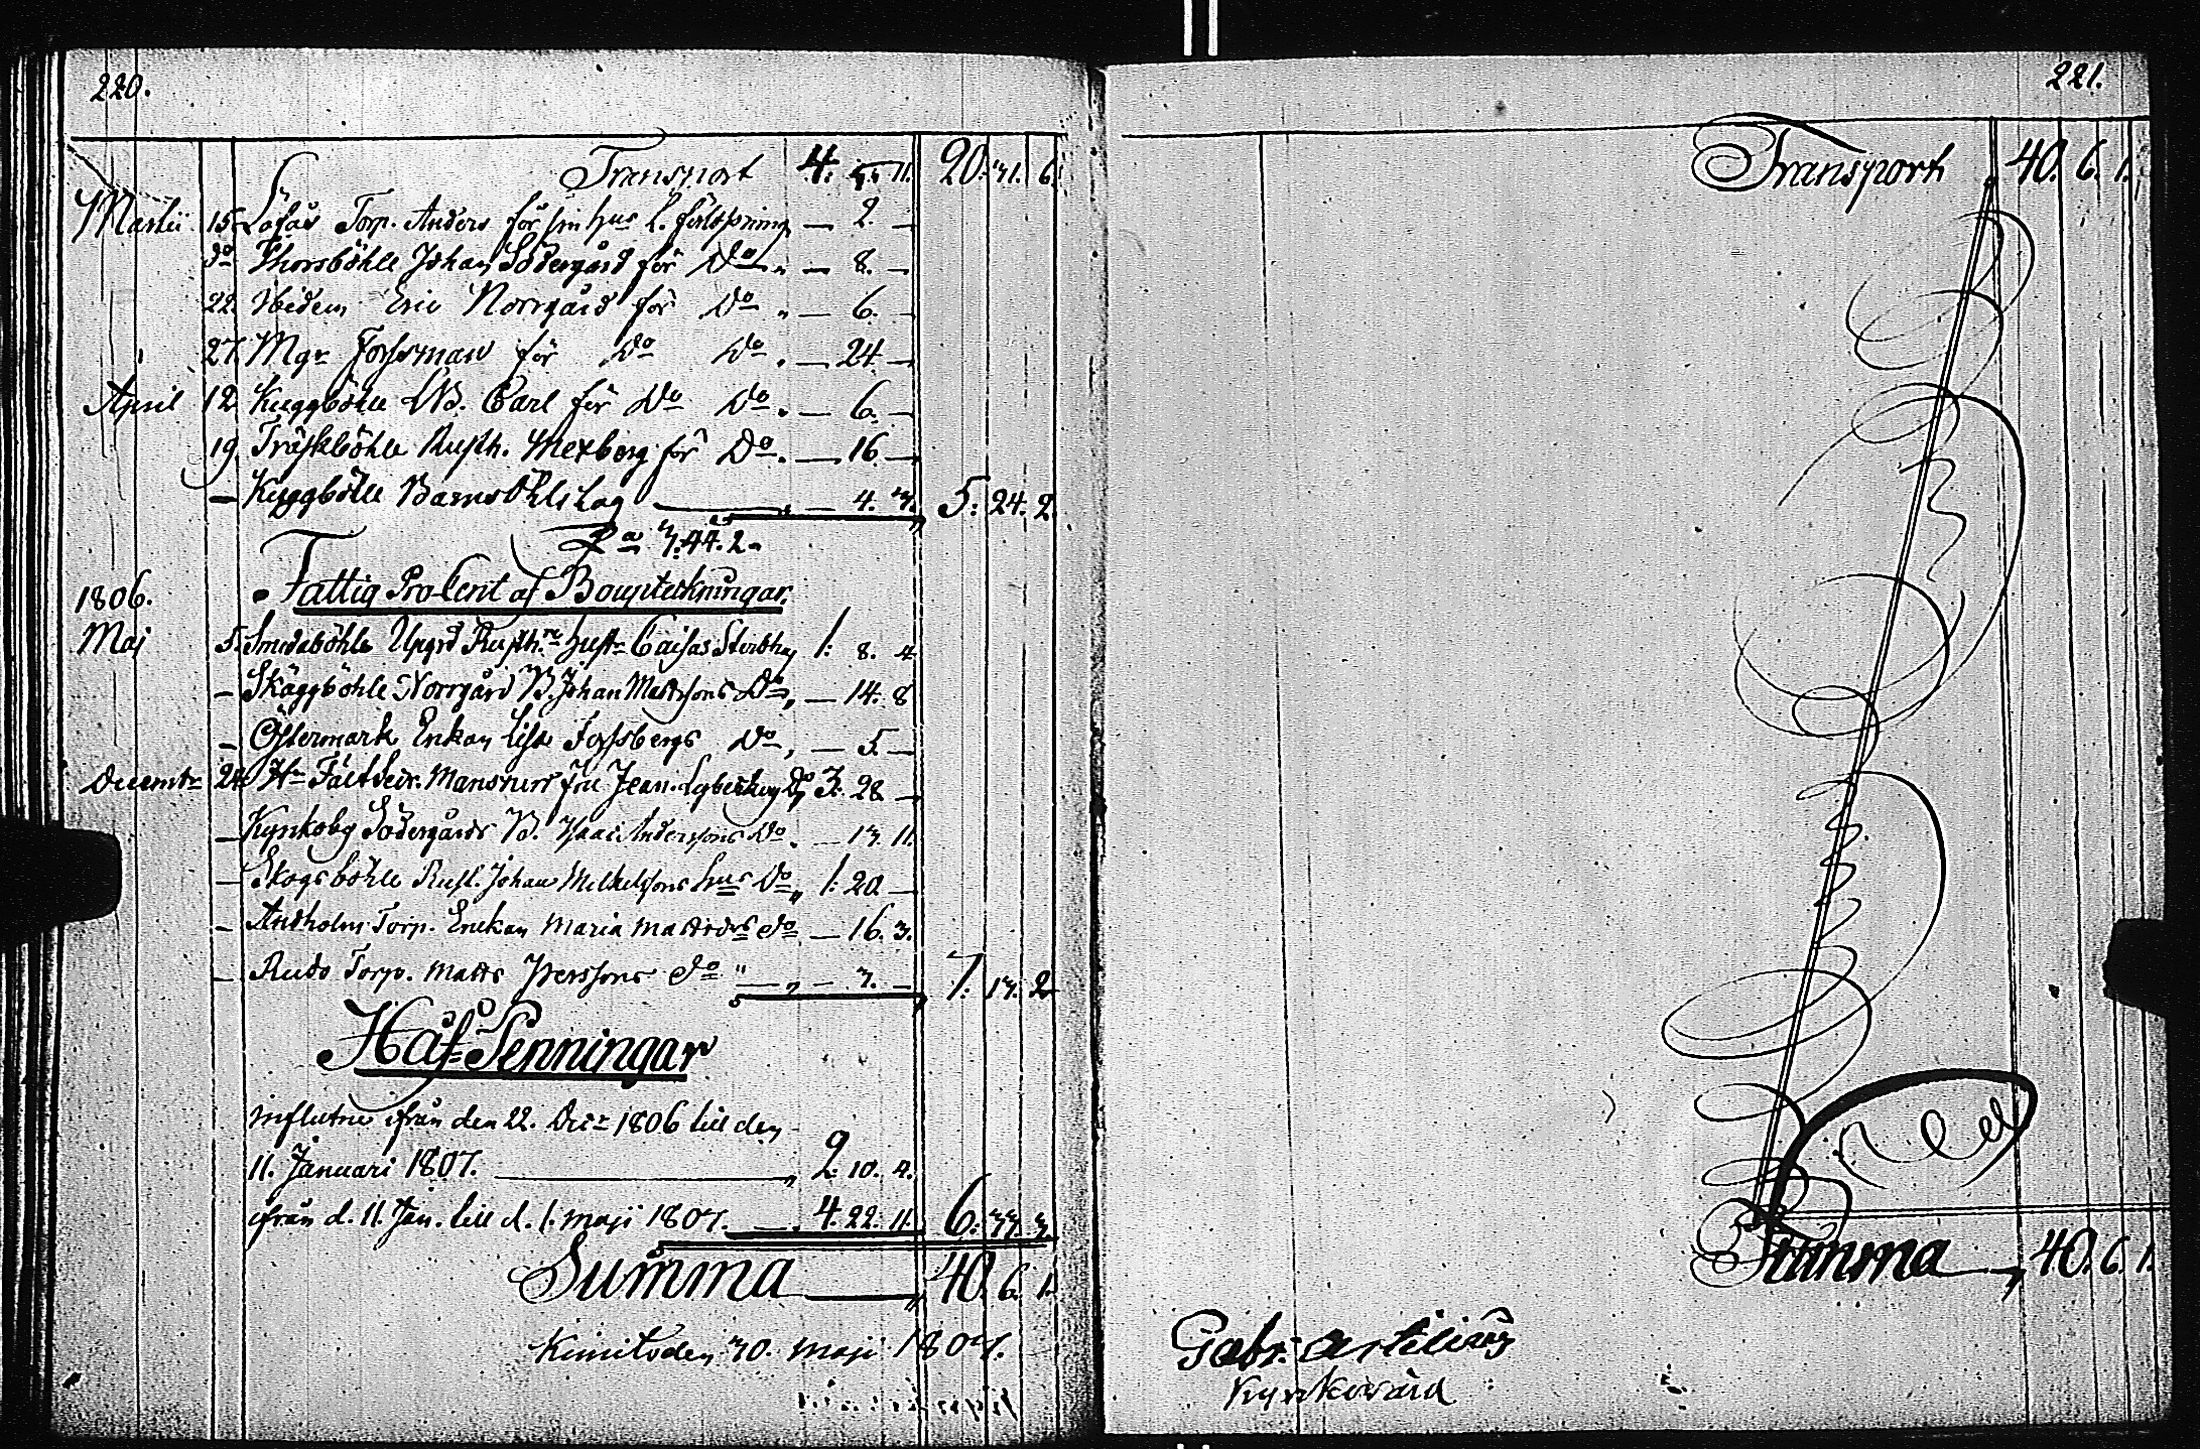 220.
Transport 4. 5. 11. 20. 41. 6.
Martii 15. Löfås Torp. Anders för sin hus — 2. —
do Thorsböhle Johan Södergård för Do — 8. —
22. Ibidem Eric Norrgård för Do — 6. —
27. Mgr Forssman för Do Do — 24 —
April 12 Kuggböhle Carl för Do Do. — 6. —
19 Träskböhle Rusth. Mexberg för Do. — 16. —
— Kuggböhle Barns Ölslag — 4. 3. 5. 24. 2.
44. 2.
1806. Fattig Pro Cent af Boupteckningar.
Maj 5. Smedsböhle Upgrd Rusth. hust. Caisas Sterbhus 1. 8. 4
— Skäggböhle Norrgård B. Johan Mattssons Do, — 14. 8
— Östermark Enkan Lisa Forssbergs Do, — 5. —
Decembr 24 Hr Fält Secr. fru Jean. Do 3. 28. —
— Kyrkoby Södergårds B. Isaac Anderssons Do. — 13. 11.
— Skogsböhle Rust. Johan Michelssons hus Do 1. 20 —
— Torp. Enckan Maria Mattsdrs do — 16. 3.
— Torp. Matts Perssons do — 3. — 7. 13. 2
Håf Penningar
influtne ifrån den 22. Decr 1806 till den
11. Januari 1807. 2. 10. 4.
ifrån d. 11. Jan. till d. 1. Maji 1807. 4. 22. 11. 6. 33. 3.
Summa 40. 6. 1.
Kimito den 30. Maji 1807.
221.
Transport 40. 6. 1.
Summa 40. 6. 1.
Gabr. Artelius
Kyrkovärd